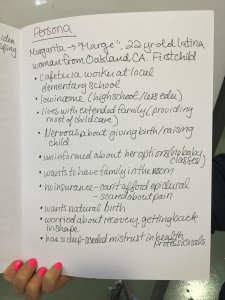 idea
Persona
Margarita → "Marge", 22 yr old latina
woman from Oakland, CA. First child
• cafeteria worker at local
elementary school
• low income (high school/less edu)
• lives with extended family (providing
most of childcare)
• Nervous about giving birth/raising
child
• uninformed about her options (no baby
classes)
• wants to have family in the room
• no insurance - can't afford epidural
- scared about pain
• wants natural birth
• worried about recovery, getting back
in shape
• has a deep-seeded mistrust in health
professionals